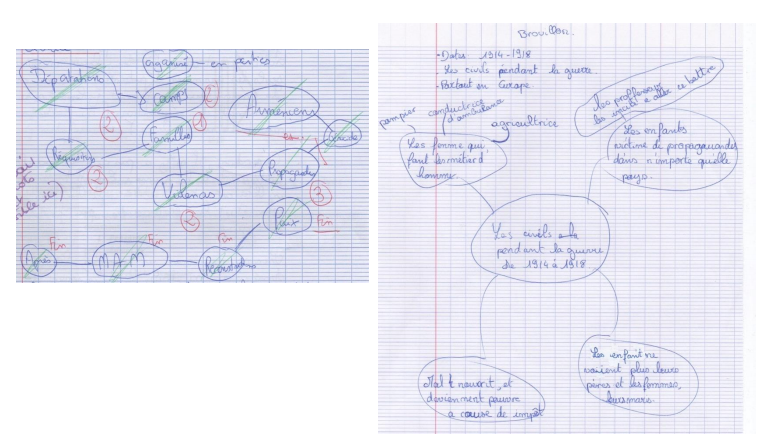 organisé en parties
Déportations
Camps
1
Arméniens
2
Familles
1
Réquisitions
2
Propagande
Violences
3
2
Paix
Fin
Fin
Fin
Fin
Après
M A M
Brouillon.
- Dates 1914-1918
- Les civils pendant la guerre
- Partout en Europe
pompier
conductrice
d'ambulance
agricultrice
Les femme qui
faut les métier d'
homme.
Les proffesseur
les incite a aller ce battre
Les enfants
victime de propagande
dans n'importe quelle
pays.
Les civils
pendant la guerre
de 1914 à 1918
Mal nourrit, et
deviennent pauvre
a cause de impôt
Les enfant ne
voient plus leurs
pères et les femmes
leurs maris.